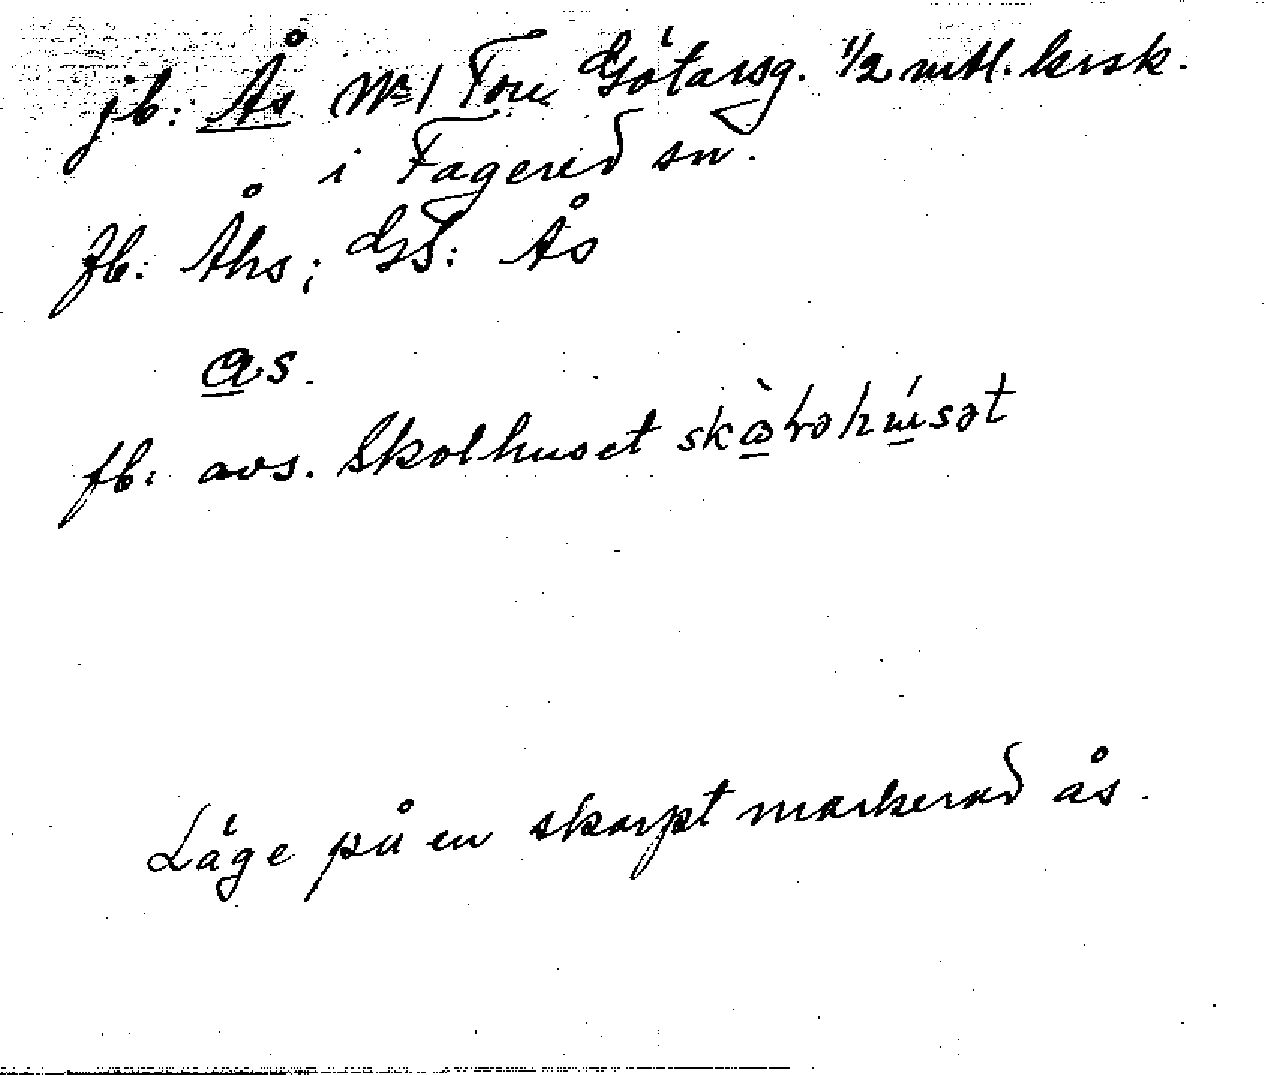 jb: Ås Nº 1 Tou Götarsg. 1/2 mtl. krsk.
i Fagered sn.
fb: Åhs; GS: Ås
as.
fb: avs. Skolhuset
Läge på en skarpt markerad ås.